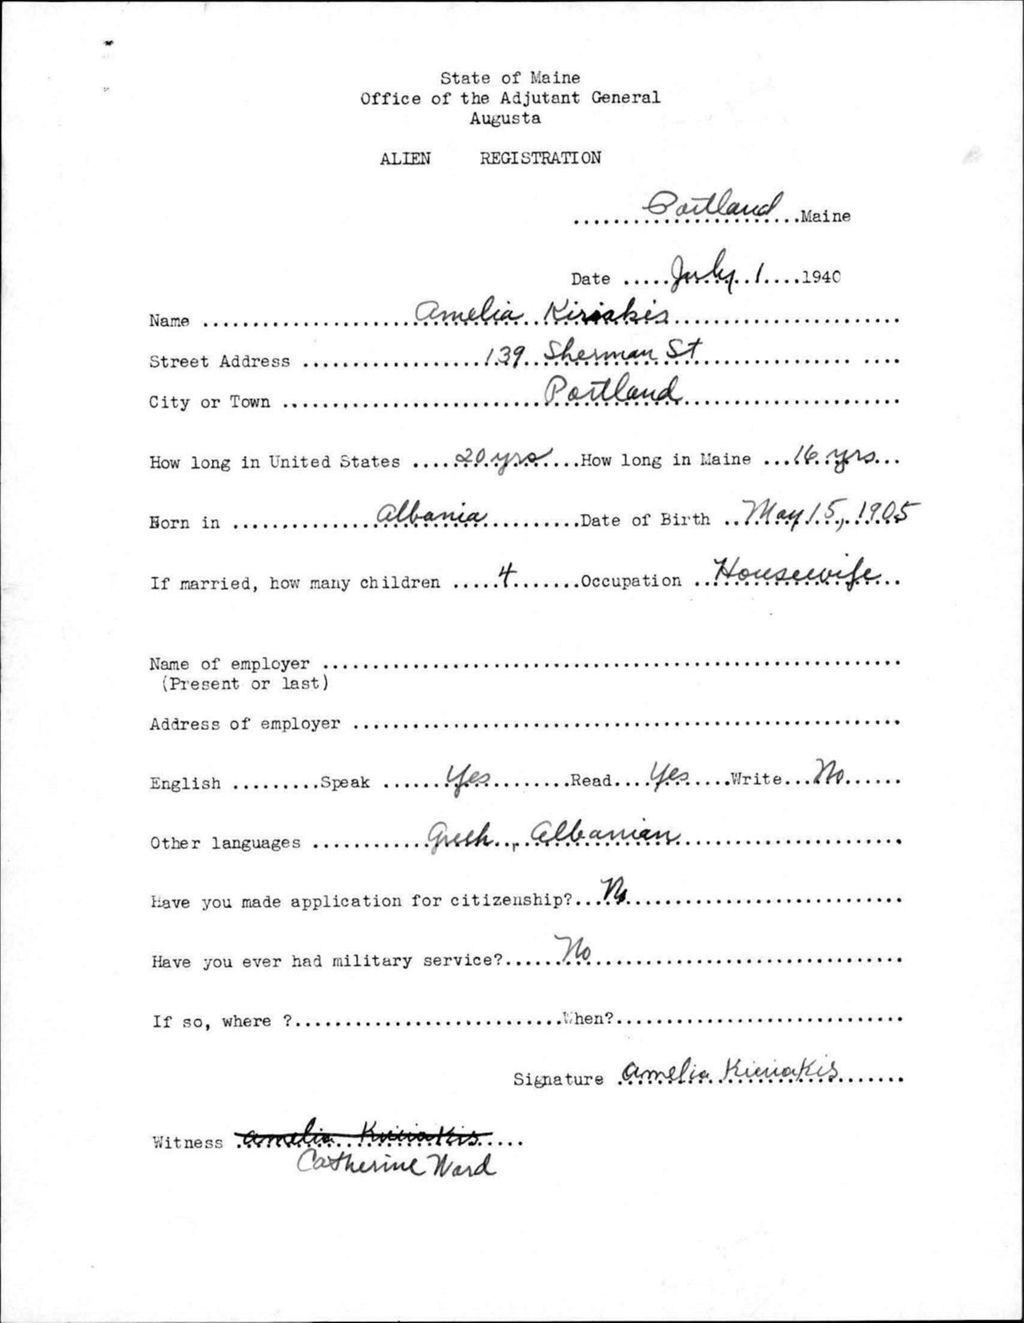 State of Maine
Office of the Adjutant General
Augusta
ALIEN REGISTRATION
Portland Maine
Date July 1 1940
Name Amelia Kiriakis
Street Address 139 Sherman St
City or Town Portland
How long in United States 20 yrs How long in Maine 16 yrs
Born in Albania Date of Birth May 15, 1905
If married, how many children 4 Occupation Housewife
Name of employer
(Present or last)
Address of employer
English Speak Yes Read Yes Write No
Other languages Greek, Albanian
Have you made application for citizenship? No
Have you ever had military service? No
If so, where ? When?
Signature Amelia Kiriakis
Witness Amelia Kiriakis
Catherine Ward